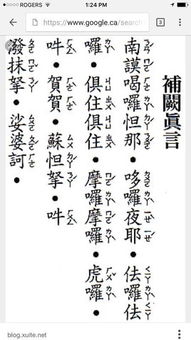 ROGERS 1:24 PM 74%
https://www.google.ca/search
補闕眞言
南謨喝囉怛那●哆囉夜耶●佉囉佉
囉●俱住俱住●摩囉摩囉●虎囉●
吽●賀賀●蘇怛拏●吽●
潑抹拏●娑婆訶●
blog.xuite.net